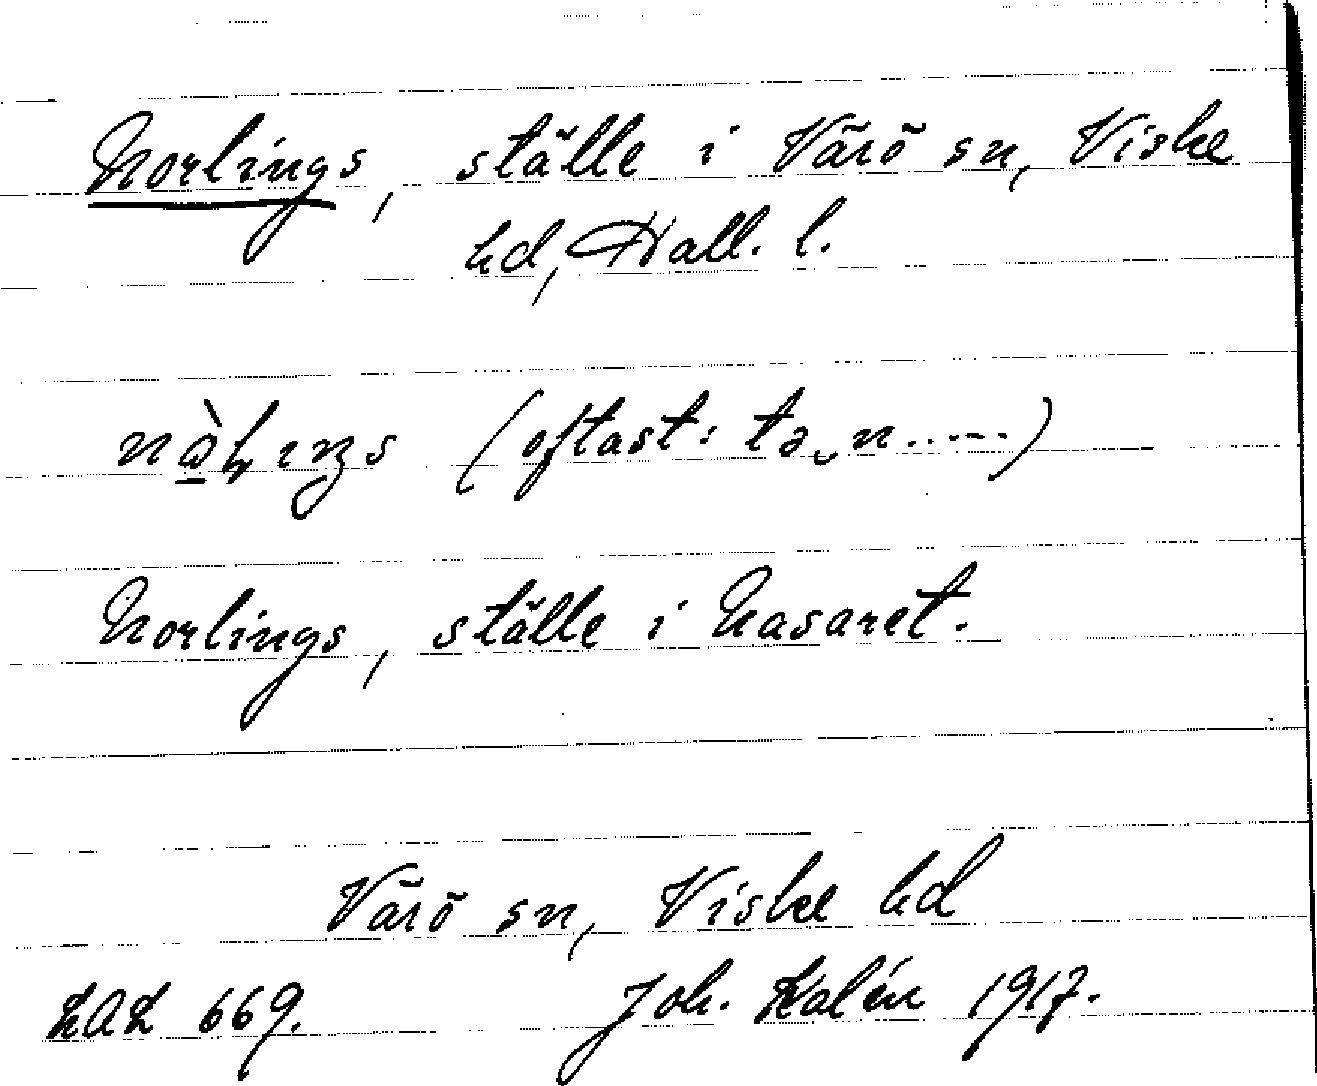 Norlings, ställe i Värö sn, Viske
hd, Hall. l.
(oftast: tə‿n.....)
Norlings, ställe i Nasaret.
Värö sn, Viske hd
LAL 669. Joh. Kalén 1917.